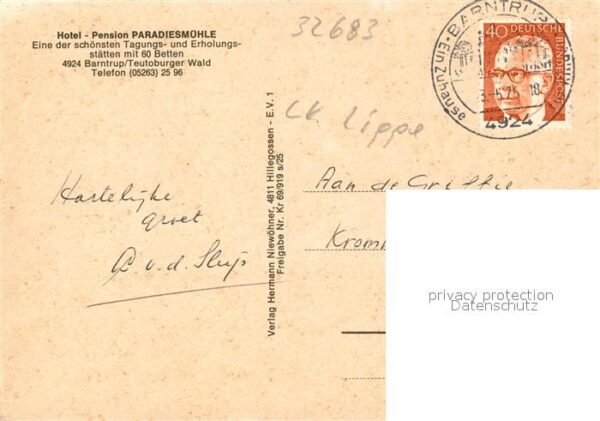 Hotel - Pension PARADIESMÜHLE
Eine der schönsten Tagungs- und Erholungs-
stätten mit 60 Betten
4924 Barntrup/Teutoburger Wald
Telefon (05263) 25 96
32683
40 DEUTSCHE
BUNDESPOST
BARNTRUP
ein Zuhause
4924
LK. Lippe
Verlag Hermann Niewöhner, 4811 Hillegossen - E.V. 1
Freigabe Nr. Kr 69/919 s/25
Hartelijke
groet
v.d. Sluijs
Aan de Griffie
Kromm
privacy protection
Datenschutz